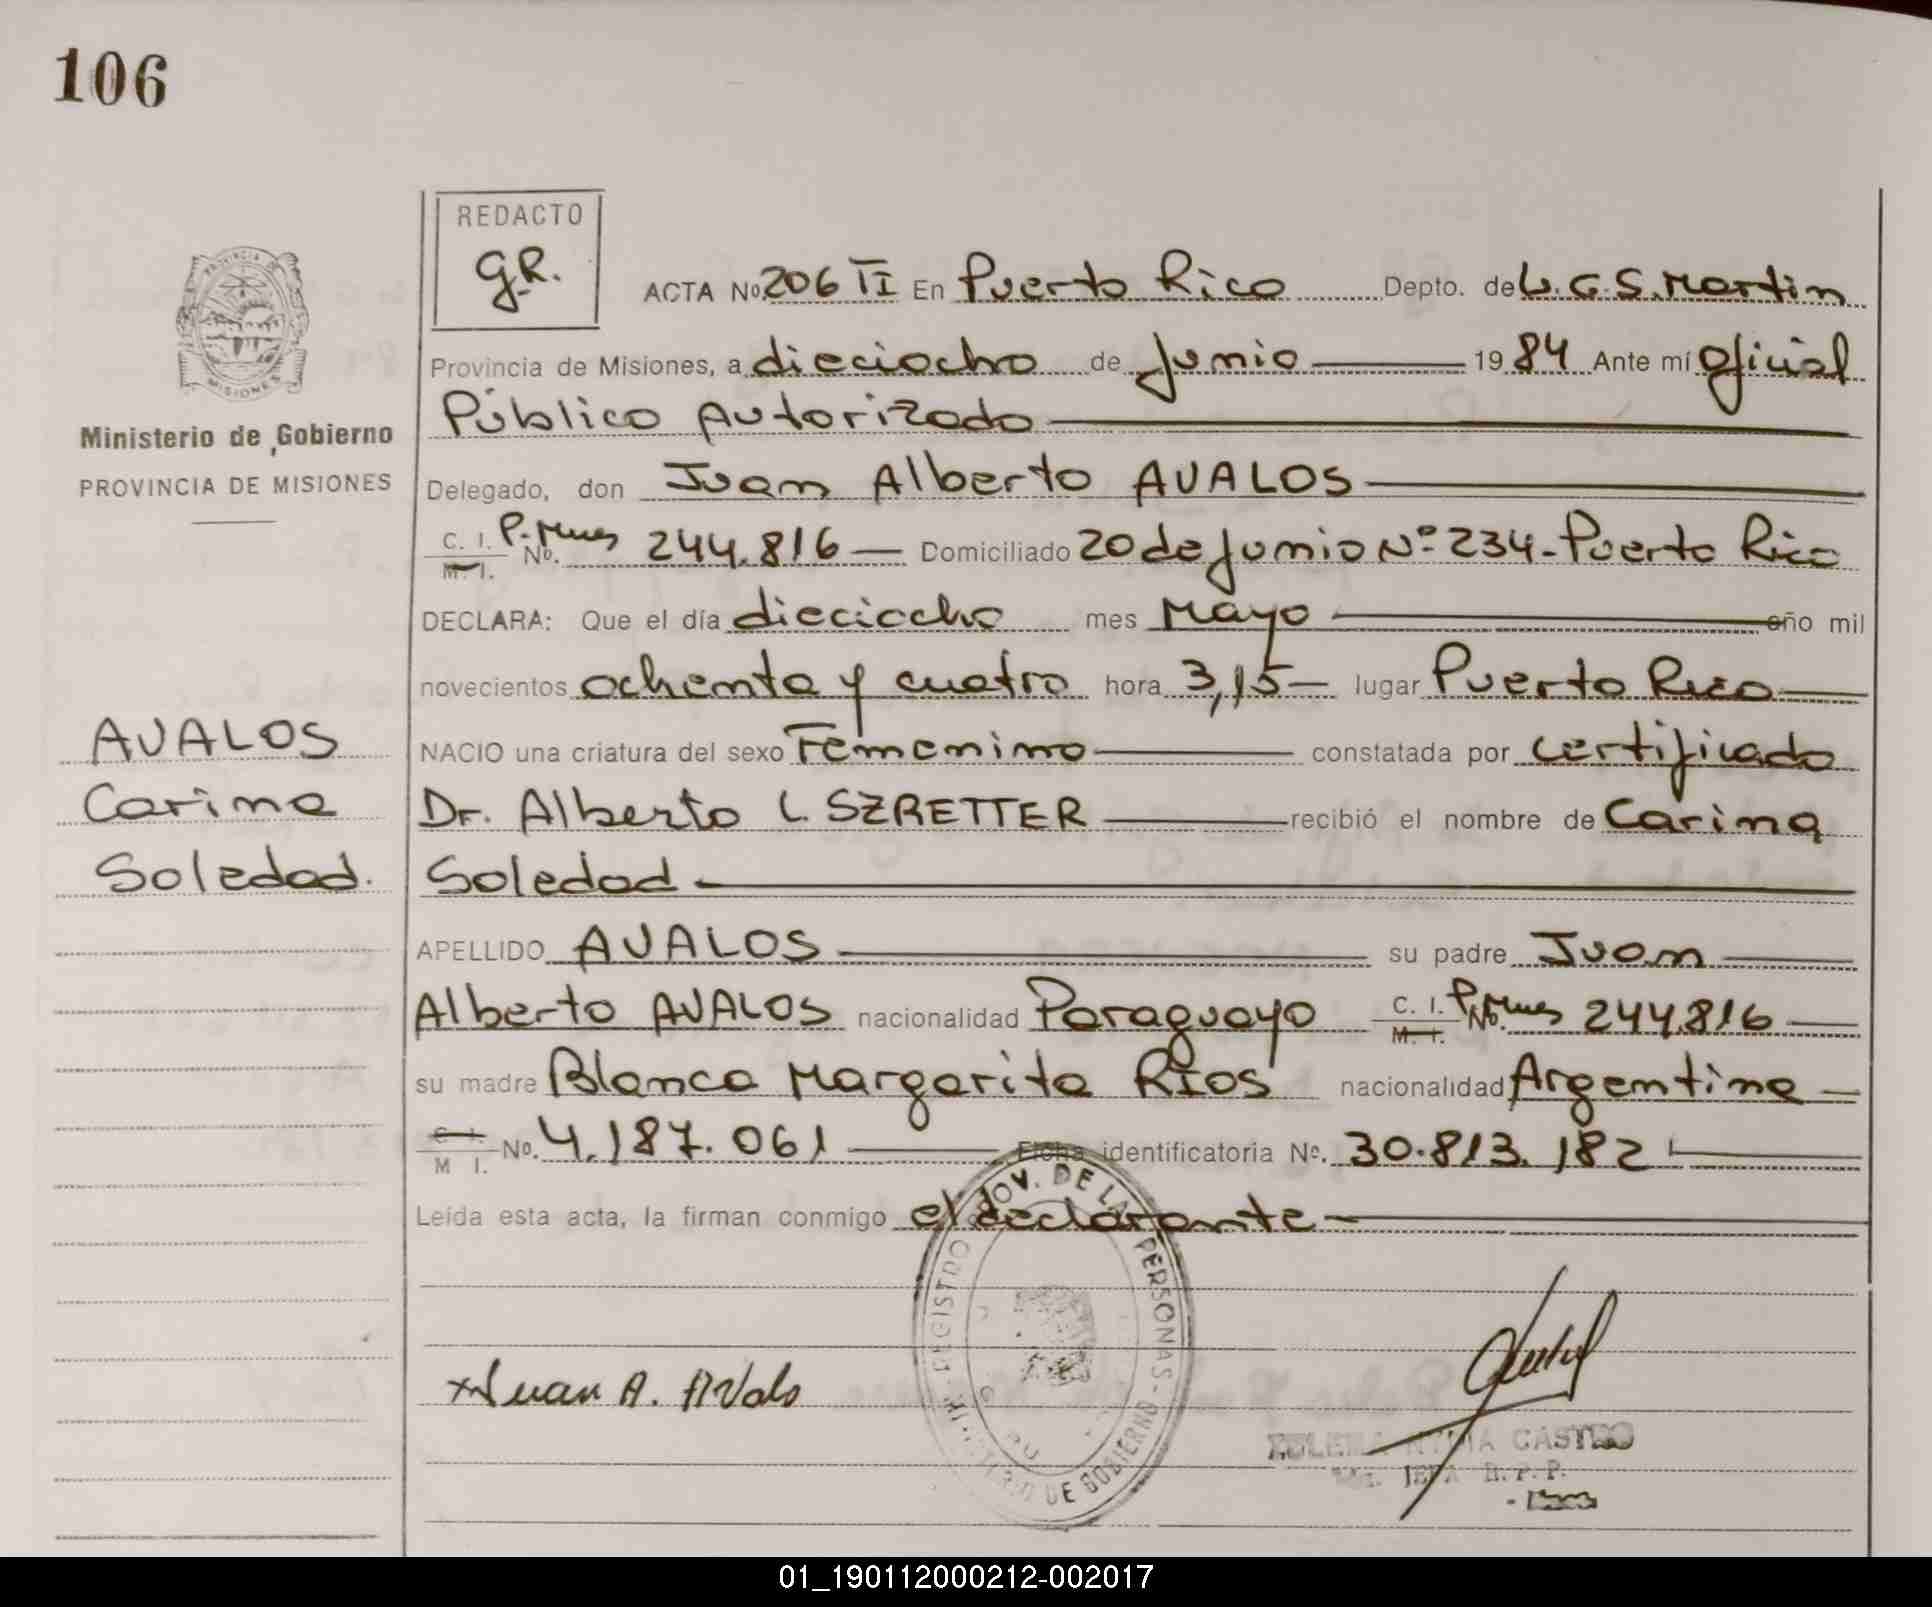 106
REDACTO
G.R.
PROVINCIA DE
MISIONES
Ministerio de Gobierno
PROVINCIA DE MISIONES
AVALOS
Carina
Soledad.
ACTA No. 206 II En Puerto Rico Depto. de L. G. S. Martin
Provincia de Misiones, a dieciocho de Junio 1984 Ante mí Oficial
Público Autorizado
Delegado, don Juan Alberto AVALOS
C. I. P. Mnes M. I. No. 244.816 Domiciliado 20 de Junio Nº 234 - Puerto Rico
DECLARA: Que el día dieciocho mes Mayo año mil
novecientos ochenta y cuatro hora 3,15 lugar Puerto Rico
NACIO una criatura del sexo Femenino constatada por certificado
Dr. Alberto L. SZRETTER recibió el nombre de Carina
Soledad
APELLIDO AVALOS su padre Juan
Alberto AVALOS nacionalidad Paraguayo C. I. P. Mnes M. I. No. 244.816
su madre Blanca Margarita RIOS nacionalidad Argentina
C. I. M. I. No. 4.187.061 Ficha identificatoria Nº. 30.813.182
Leída esta acta, la firman conmigo el declarante
REGISTRO PROV. DE LAS PERSONAS - MINISTERIO DE GOBIERNO
Juan A. Avalo
CASTRO
JEFA R. P. P.
01_190112000212-002017